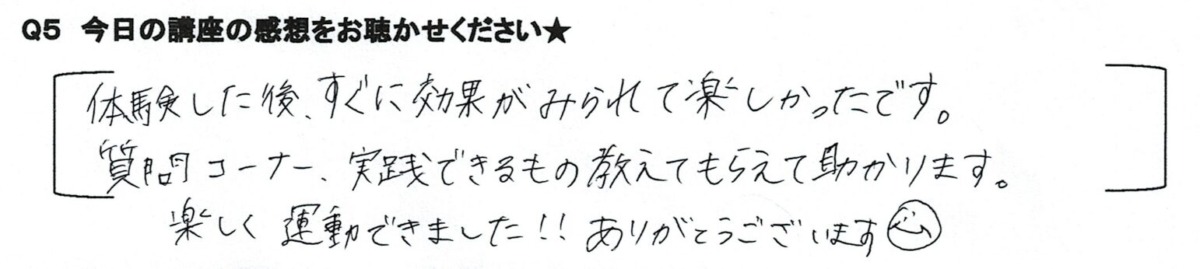 Q5 今日の講座の感想をお聴かせください★
体験した後、すぐに効果がみられて楽しかったです。
質問コーナー、実践できるもの教えてもらえて助かります。
楽しく 運動できました!! ありがとうございます